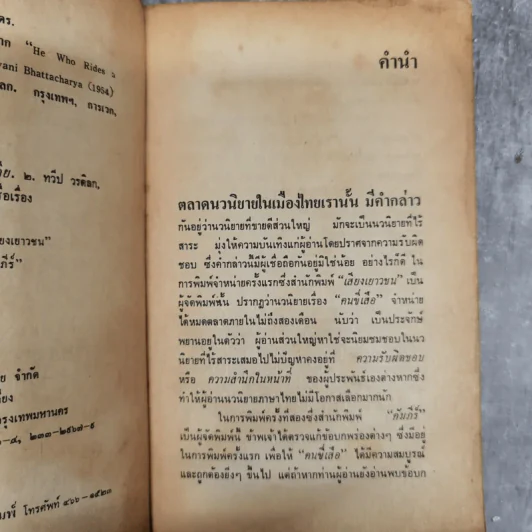 ดร.
าก "He Who Rides a
vani Bhattacharya (1954)
ลก. กรุงเทพฯ, การเวก,
ย. ๒. ทวีป วรดิลก.
ชื่อเรื่อง
ียงเยาวชน"
ภีร์"
ย จำกัด
ียง
กรุงเทพมหานคร
โทรศัพท์ ๔๖๖-๑๕๒๓
คำนำ
ตลาดนวนิยายในเมืองไทยเรานั้น มีคำกล่าว
กันอยู่ว่านวนิยายที่ขายดีส่วนใหญ่ มักจะเป็นนวนิยายที่ไร้
สาระ มุ่งให้ความบันเทิงแก่ผู้อ่านโดยปราศจากความรับผิด
ชอบ ซึ่งคำกล่าวนี้มีผู้เชื่อถือกันอยู่มิใช่น้อย อย่างไรก็ดี ใน
การพิมพ์จำหน่ายครั้งแรกซึ่งสำนักพิมพ์ "เสียงเยาวชน" เป็น
ผู้จัดพิมพ์นั้น ปรากฏว่านวนิยายเรื่อง "คนขี่เสือ" จำหน่าย
ได้หมดตลาดภายในไม่ถึงสองเดือน นับว่า เป็นประจักษ์
พยานอยู่ในตัวว่า ผู้อ่านส่วนใหญ่หาใช่จะนิยมชมชอบในนว
นิยายที่ไร้สาระเสมอไปไม่ปัญหาคงอยู่ที่ ความรับผิดชอบ
หรือ ความสำนึกในหน้าที่ ของผู้ประพันธ์เองต่างหากซึ่ง
ทำให้ผู้อ่านนวนิยายภาษาไทยไม่มีโอกาสเลือกมากนัก
ในการพิมพ์ครั้งที่สองซึ่งสำนักพิมพ์ "คัมภีร์"
เป็นผู้จัดพิมพ์นี้ ข้าพเจ้าได้ตรวจแก้ข้อบกพร่องต่างๆ ซึ่งมีอยู่
ในการพิมพ์ครั้งแรก เพื่อให้ "คนขี่เสือ" ได้มีความสมบูรณ์
และถูกต้องยิ่งๆ ขึ้นไป แต่ถ้าหากท่านผู้อ่านยังอ่านพบข้อบก